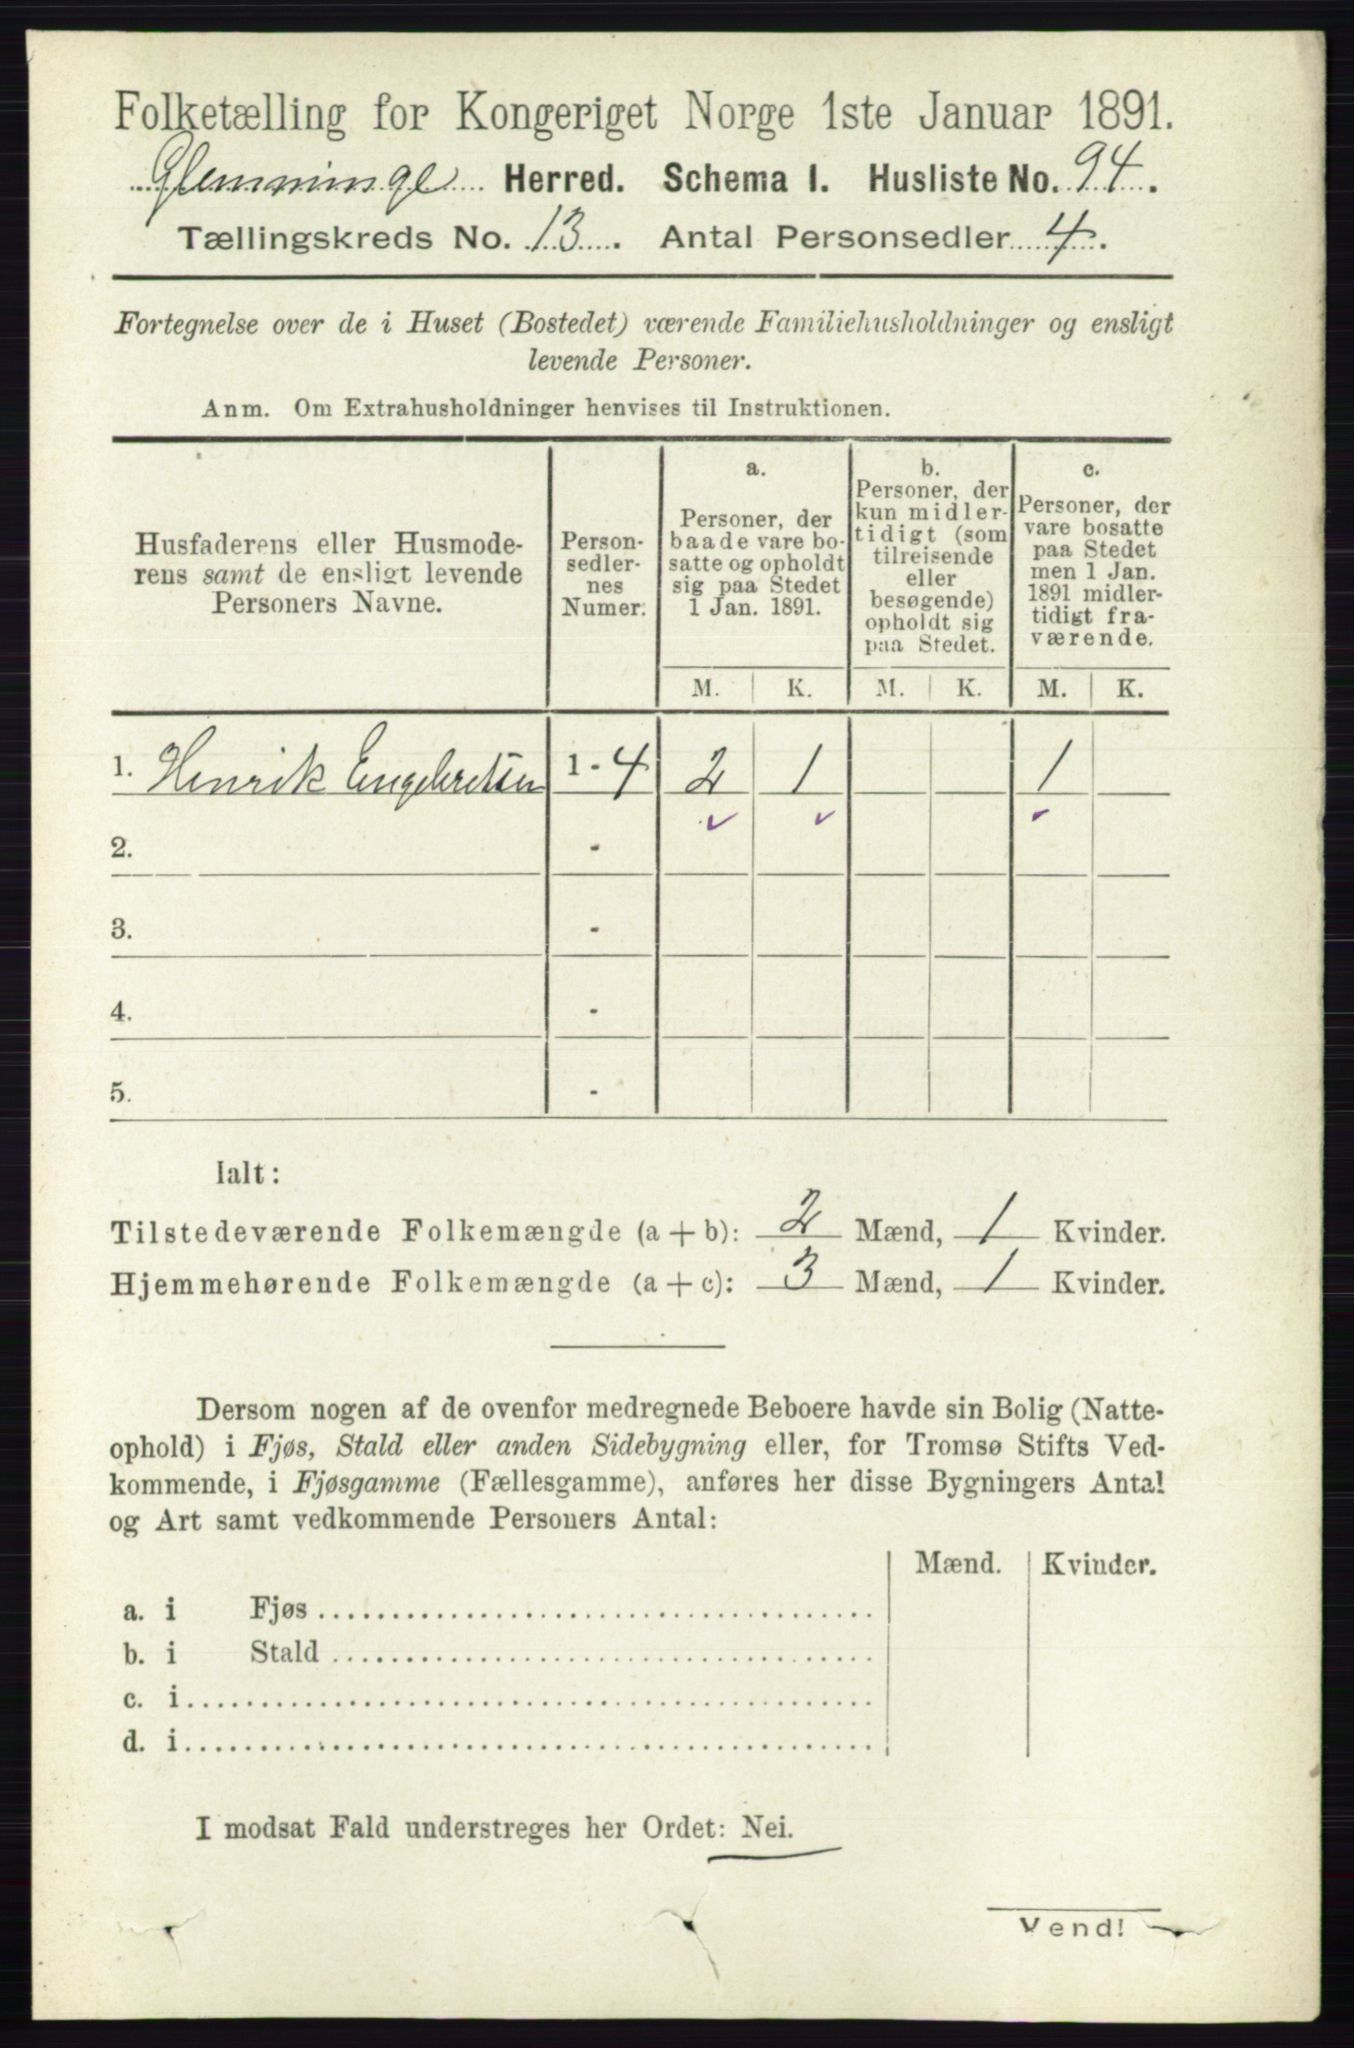 Folketælling for Kongeriget Norge 1ste Januar 1891.
Glemminge Herred. Schema I. Husliste No. 94.
Tællingskreds No. 13. Antal Personsedler 4.
Fortegnelse over de i Huset (Bostedet) værende Familiehusholdninger og ensligt
levende Personer.
Anm. Om Extrahusholdninger henvises til Instruktionen.
Husfaderens eller Husmode-
rens samt de ensligt levende
Personers Navne.
Person-
sedler-
nes
Numer.
a.
Personer, der
baade vare bo-
satte og opholdt
sig paa Stedet
1 Jan. 1891.
b.
Personer, der
kun midler-
tidigt (som
tilreisende
eller
besøgende)
opholdt sig
paa Stedet.
c.
Personer, der
vare bosatte
paa Stedet
men 1 Jan.
1891 midler-
tidigt fra-
værende.
M. K. M. K. M. K.
1. Henrik Engebretsen 1 - 4 2 1 1
2. -
3. -
4. -
5. -
Ialt:
Tilstedeværende Folkemængde (a + b): 2 Mænd, 1 Kvinder.
Hjemmehørende Folkemængde (a + c): 3 Mænd, 1 Kvinder.
Dersom nogen af de ovenfor medregnede Beboere havde sin Bolig (Natte-
ophold) i Fjøs, Stald eller anden Sidebygning eller, for Tromsø Stifts Ved-
kommende, i Fjøsgamme (Fællesgamme), anføres her disse Bygningers Antal
og Art samt vedkommende Personers Antal:
Mænd. Kvinder.
a. i Fjøs
b. i Stald
c. i
d. i
I modsat Fald understreges her Ordet: Nei.
Vend!